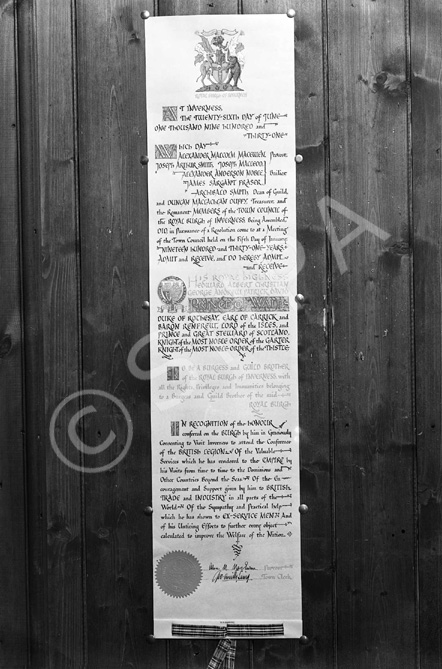 ROYAL BURGH OF INVERNESS
AT INVERNESS,
THE TWENTY-SIXTH DAY OF JUNE
ONE THOUSAND NINE HUNDRED and
THIRTY-ONE
WHICH DAY
ALEXANDER MALCOLM MACEWEN, Provost
JOSEPH ARTHUR SMITH, JOSEPH MACLEOD
ALEXANDER ANDERSON NOBLE, Bailies
JAMES SARGANT FRASER
ARCHIBALD SMITH, Dean of Guild,
and DUNCAN MACLACHLAN DUFFY, Treasurer and
the Remanent MEMBERS of the TOWN COUNCIL of
the ROYAL BURGH of INVERNESS Being Assembled,
DID in Pursuance of a Resolution come to at a Meeting
of the Town Council held on the Fifth Day of January
NINETEEN HUNDRED and THIRTY-ONE YEARS
ADMIT and RECEIVE, and DO HEREBY ADMIT
and RECEIVE
HIS ROYAL HIGHNESS
EDWARD ALBERT CHRISTIAN
GEORGE ANDREW PATRICK DAVID
PRINCE OF WALES
DUKE OF ROTHESAY, EARL OF CARRICK, and
BARON RENFREW, LORD of the ISLES, and
PRINCE and GREAT STEWARD of SCOTLAND,
KNIGHT of the MOST NOBLE ORDER of the GARTER
KNIGHT of the MOST NOBLE ORDER of the THISTLE
TO BE A BURGESS and GUILD BROTHER
of the ROYAL BURGH of INVERNESS with
all the Rights, Privileges and Immunities belonging
to a Burgess and Guild Brother of the said
ROYAL BURGH
IN RECOGNITION of the HONOUR
conferred on the BURGH by him in Graciously
Consenting to Visit Inverness to attend the Conference
of the BRITISH LEGION OF the Valuable
Services which he has rendered to the EMPIRE by
his Visits from time to time to the Dominions and
Other Countries Beyond the Seas OF the En-
couragement and Support given by him to BRITISH
TRADE and INDUSTRY in all parts of the
World OF the Sympathy and Practical help
which he has shown to EX-SERVICE MEN and
of his Untiring Efforts to further every object
calculated to improve the Welfare of the Nation.
Provost
Town Clerk
©